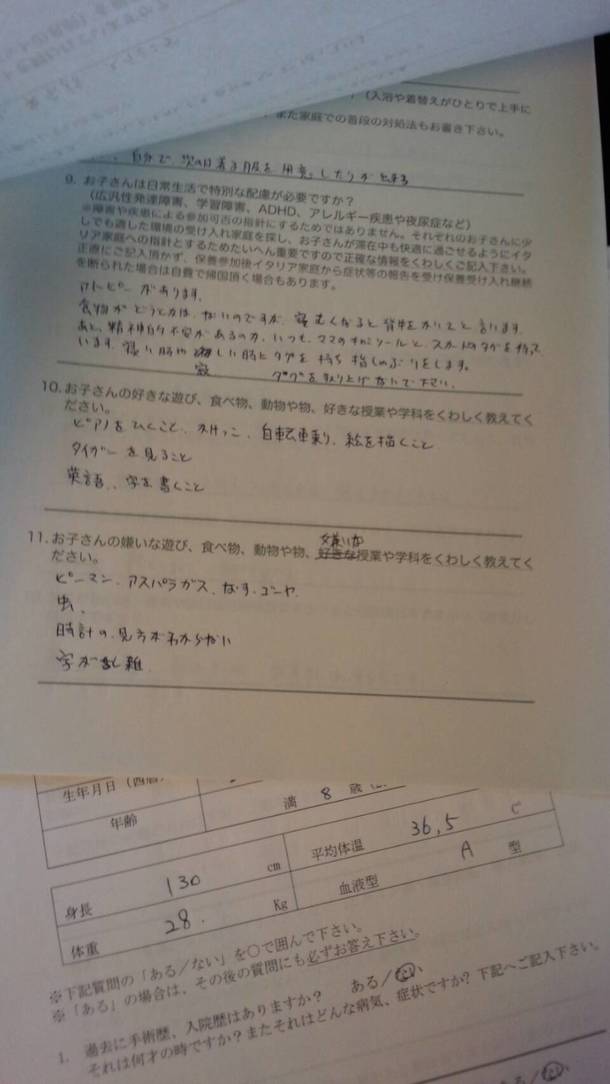 （入浴や着替えがひとりで上手に
また家庭での普段の対処法もお書き下さい。
自分で、次の日着る服を用意したりができる
9. お子さんは日常生活で特別な配慮が必要ですか？
（広汎性発達障害、学習障害、ADHD、アレルギー疾患や夜尿症など）
※障害や疾患による参加可否の指針にするためではありません。それぞれのお子さんに少
しでも適した環境の受け入れ家庭を探し、お子さんが滞在中も快適に過ごせるようにイタ
リア家庭への指針とするためたいへん重要ですので正確な情報をくわしくご記入下さい。
正直にご記入頂かず、保養参加後イタリア家庭から症状等の報告を受け保養受け入れ継続
を断られた場合は自費で帰国頂く場合もあります。
アトピーがあります。
食物がどうとかは、ないのですが、寝むくなると背中をかいてと言います。
あと、精神的不安があるのか、いつも、ママのキャミソールと、タグを持って
います。寝る時や淋しい時とタグを持ち指しゃぶりをします。
タグを取り上げないで下さい。
10. お子さんの好きな遊び、食べ物、動物や物、好きな授業や学科をくわしく教えてく
ださい。
ピアノをひくこと、かけっこ、自転車乗り、絵を描くこと
タイガーを見ること
英語、字を書くこと
11. お子さんの嫌いな遊び、食べ物、動物や物、好きな嫌いな授業や学科をくわしく教えてく
ださい。
ピーマン、アスパラガス、なす、ゴーヤ
虫、
時計の見方がわからない
字が乱雑
生年月日（西暦）
年齢 満 8 歳
身長 130 cm 平均体温 36,5 C
体重 28. Kg 血液型 A 型
※下記質問の「ある／ない」を○で囲んで下さい。
※「ある」の場合は、その後の質問にも必ずお答え下さい。
1. 過去に手術歴、入院歴はありますか？ ある／ない
それは何才の時ですか？またそれはどんな病気、症状ですか？下記へご記入下さい。
ある／ない